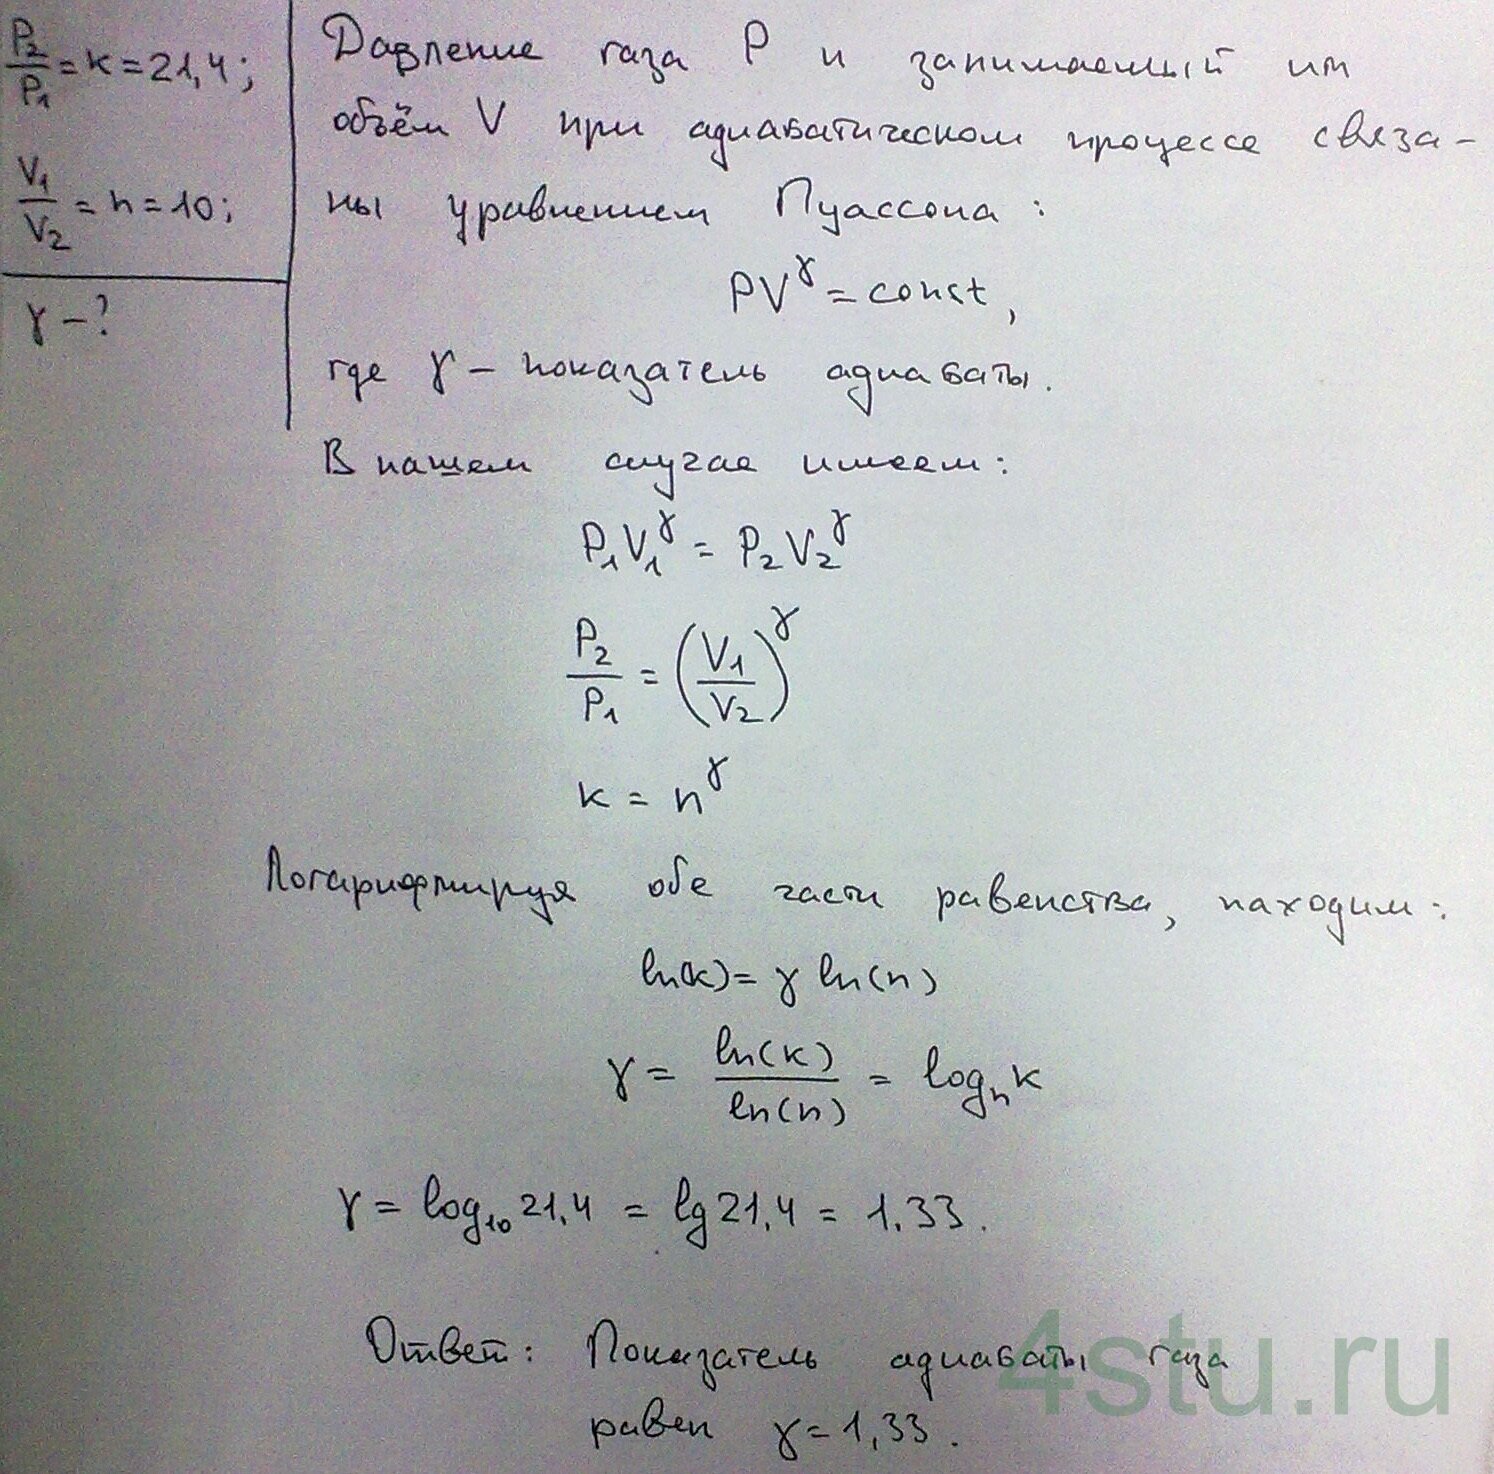 P₂/P₁ = k = 21,4;
V₁/V₂ = n = 10;
γ – ?
Давление газа P и занимаемый им
объём V при адиабатическом процессе связа-
ны уравнением Пуассона:
PV^γ = const,
где γ – показатель адиабаты.
В нашем случае имеем:
P₁V₁^γ = P₂V₂^γ
P₂/P₁ = (V₁/V₂)^γ
k = n^γ
Логарифмируя обе части равенства, находим:
ln(k) = γ ln(n)
γ = ln(k)/ln(n) = logₙ k
γ = log₁₀ 21,4 = lg 21,4 = 1,33.
Ответ: Показатель адиабаты газа
равен γ = 1,33.
4stu.ru